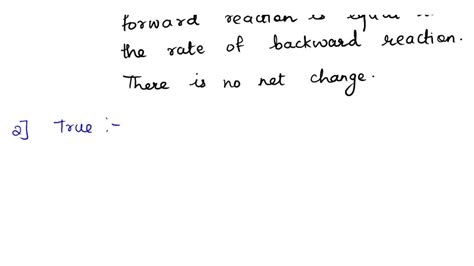 forward reaction is equal to
the rate of backward reaction.
There is no net change.
a] True :-